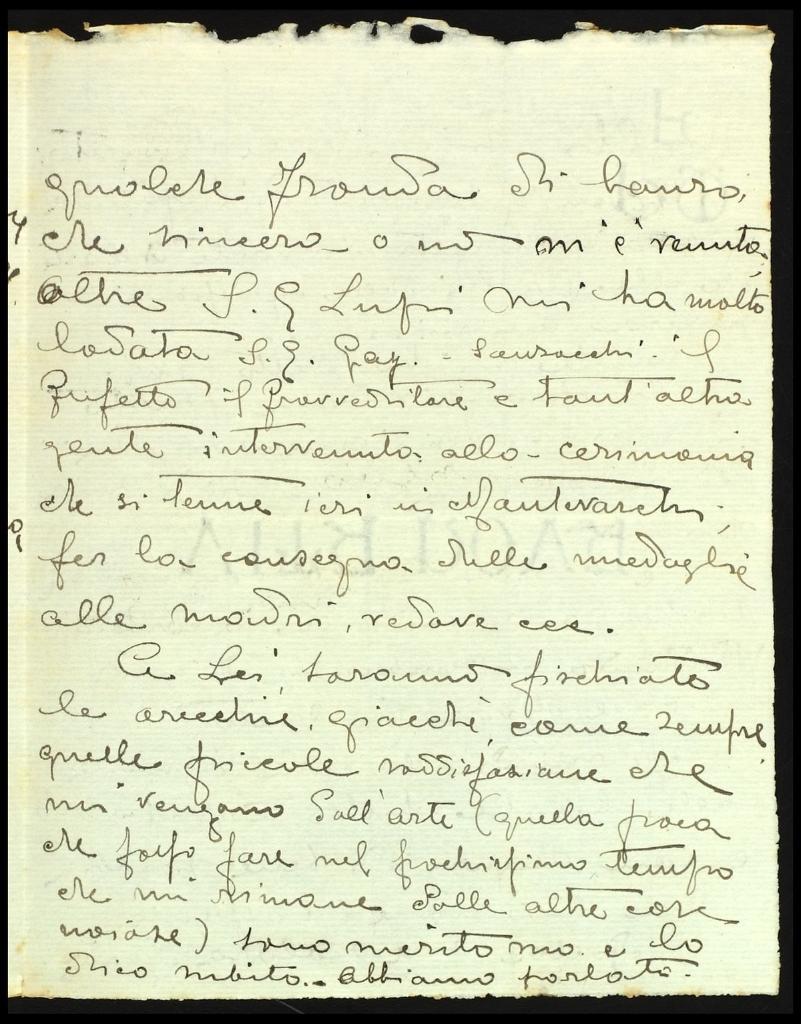 qualche fronda di lauro,
che sincera o no m'è venuta.
Oltre S. E Lupi mi ha molto
lodata S. E. Gay. - Sanzocchi. il
Prefetto il Provveditore e tant'altra
gente intervenuta alla cerimonia
che si tenne ieri in Montevarchi,
per la consegna delle medaglie
alle madri, vedove ecc.
A Lei, saranno fischiato
le orecchie, giacchè, come sempre
quelle piccole soddisfazione che
mi vengano dall'arte (quella poca
che posso fare nel pochissimo tempo
che mi rimane dalle altre cose
noiose) sono merito suo e lo
dico subito. Abbiamo parlato.